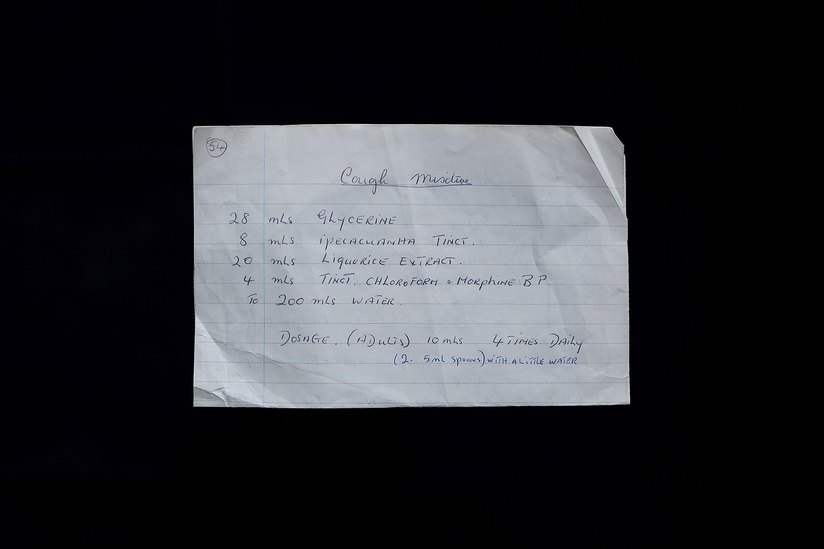 54
Cough Mixture
28 mls GLYCERINE
8 mls IPECACUANHA TINCT.
20 mls LIQUORICE EXTRACT.
4 mls TINCT. CHLOROFORM & MORPHINE B.P.
To 200 mls WATER.
DOSAGE. (ADULTS) 10 mls 4 TIMES DAILY
(2. 5ml spoons) WITH A LITTLE WATER